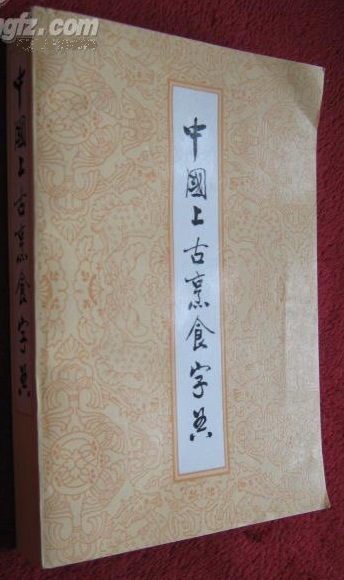 ngfz.com
中國上古烹食字典
中國上古烹食字典